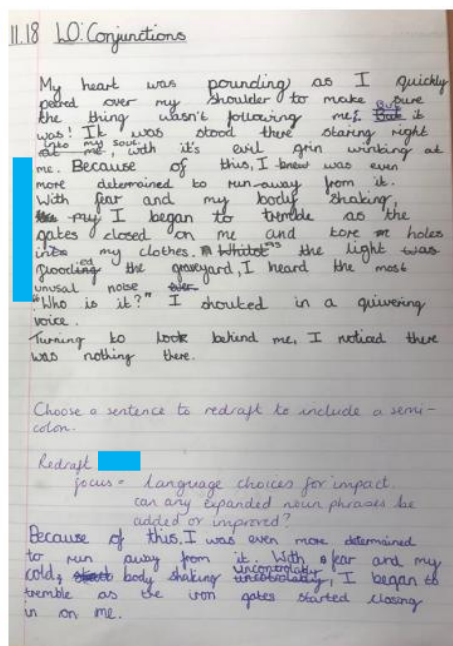 11.18 LO: Conjunctions
My heart was pounding as I quickly
peered over my shoulder to make sure
the thing wasn't following me. But it
was! It was stood there staring right
into my soul, with it's evil grin winking at
me. Because of this, I was even
more determined to run away from it.
With fear and my body shaking,
I began to tremble as the
gates closed on me and tore holes
into my clothes. as the light
flooded the graveyard, I heard the most
unusal noise
"Who is it?" I shouted in a quivering
voice.
Turning to look behind me, I noticed there
was nothing there.
Choose a sentence to redraft to include a semi-
colon.
Redraft
focus = language choices for impact.
can any expanded noun phrases be
added or improved?
Because of this, I was even more determined
to run away from it. With fear and my
cold, body shaking uncontrolably, I began to
tremble as the iron gates started closing
in on me.